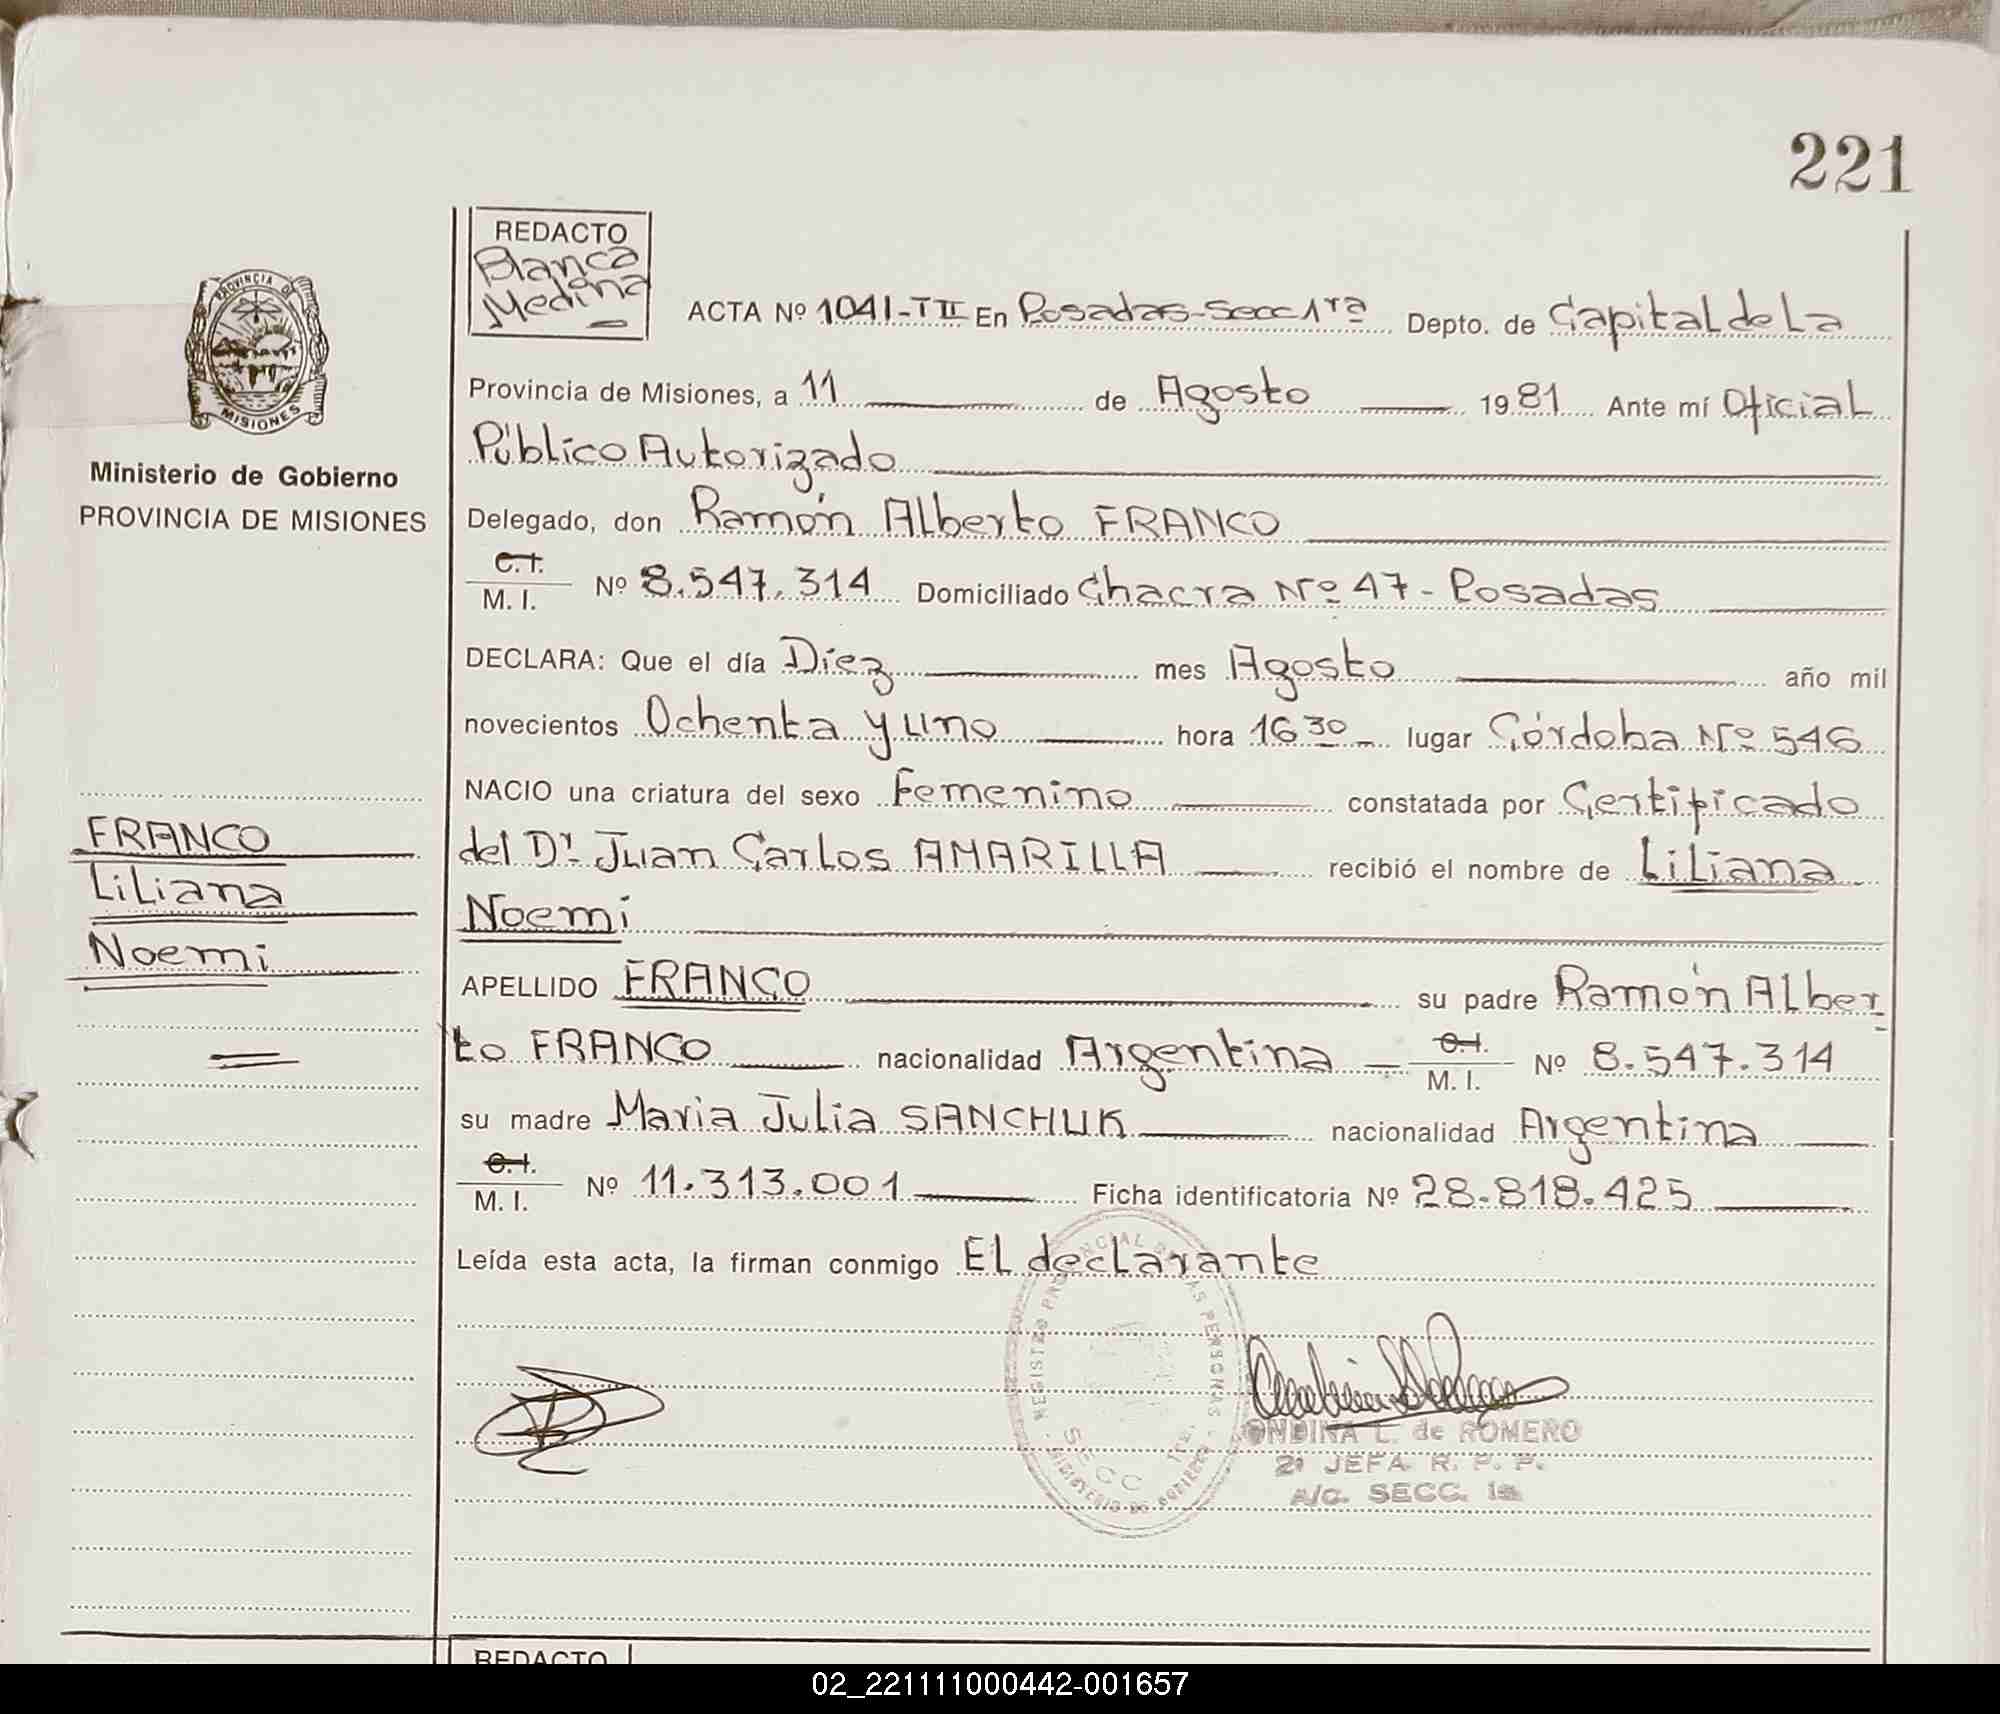 221
REDACTO
Blanca
Medina
ACTA Nº 1041-TII En Posadas-Secc 1ra Depto. de Capital de La
Provincia de Misiones, a 11 de Agosto 1981 Ante mí Oficial
Público Autorizado
Delegado, don Ramón Alberto FRANCO
C.I.
M. I. Nº 8.547.314 Domiciliado Chacra Nº 47 - Posadas
DECLARA: Que el día Diez mes Agosto año mil
novecientos Ochenta y uno hora 16 30 lugar Córdoba Nº 546
NACIO una criatura del sexo Femenino constatada por Certificado
del Dr. Juan Carlos AMARILLA recibió el nombre de Liliana
Noemi
APELLIDO FRANCO su padre Ramón Alber
to FRANCO nacionalidad Argentina C.I.
M. I. Nº 8.547.314
su madre Maria Julia SANCHUK nacionalidad Argentina
C.I.
M. I. Nº 11.313.001 Ficha identificatoria Nº 28.818.425
Leída esta acta, la firman conmigo EL declarante
PROVINCIA DE
MISIONES
Ministerio de Gobierno
PROVINCIA DE MISIONES
FRANCO
Liliana
Noemi
REGISTRO PROVINCIAL DE LAS PERSONAS
MINISTERIO DE GOBIERNO
SECC 1ra.
ONDINA L. de ROMERO
2ª JEFA R. P. P.
A/C. SECC. 1a
REDACTO
02_221111000442-001657